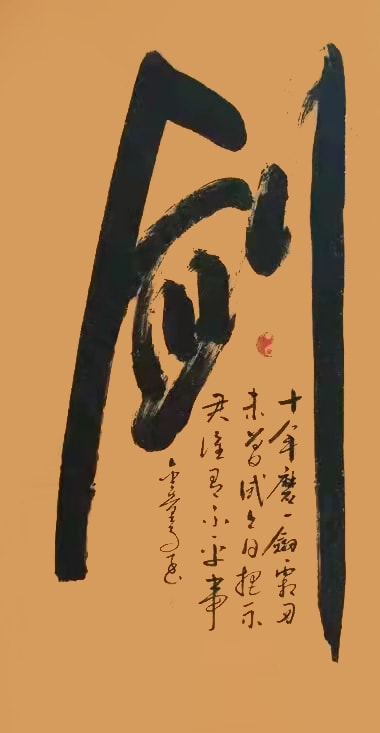 剑
十年磨一劍霜刃
未曾試今日把示
君誰有不平事